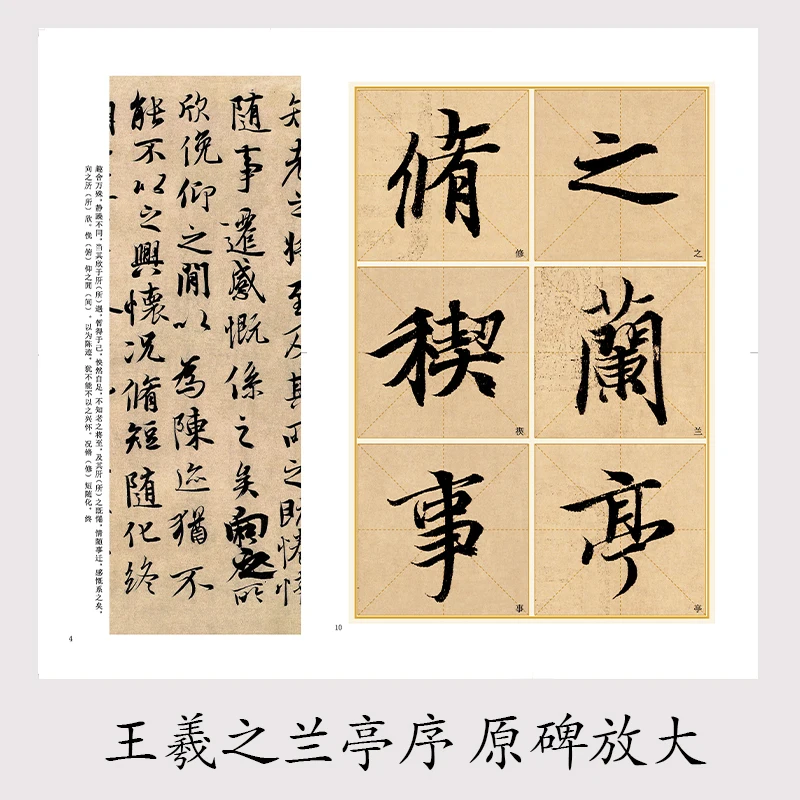 知老之将至及其所之既惓情
隨事遷感慨係之矣向之所
欣俛仰之閒以為陳迹猶不
能不以之興懷況脩短隨化終
趣舍万殊，静躁不同，当其欣于㪽（所）遇，暂得于己，怏然自足，不知老之将至，及其㪽（所）之既惓，情随事迁，感慨系之矣。
向之㪽（所）欣，俛（俯）仰之閒（间），以为陈迹，犹不能不以之兴怀，况脩（修）短随化，终
4
之
之
蘭
兰
亭
亭
脩
修
稧
事
事
10
王羲之兰亭序 原碑放大